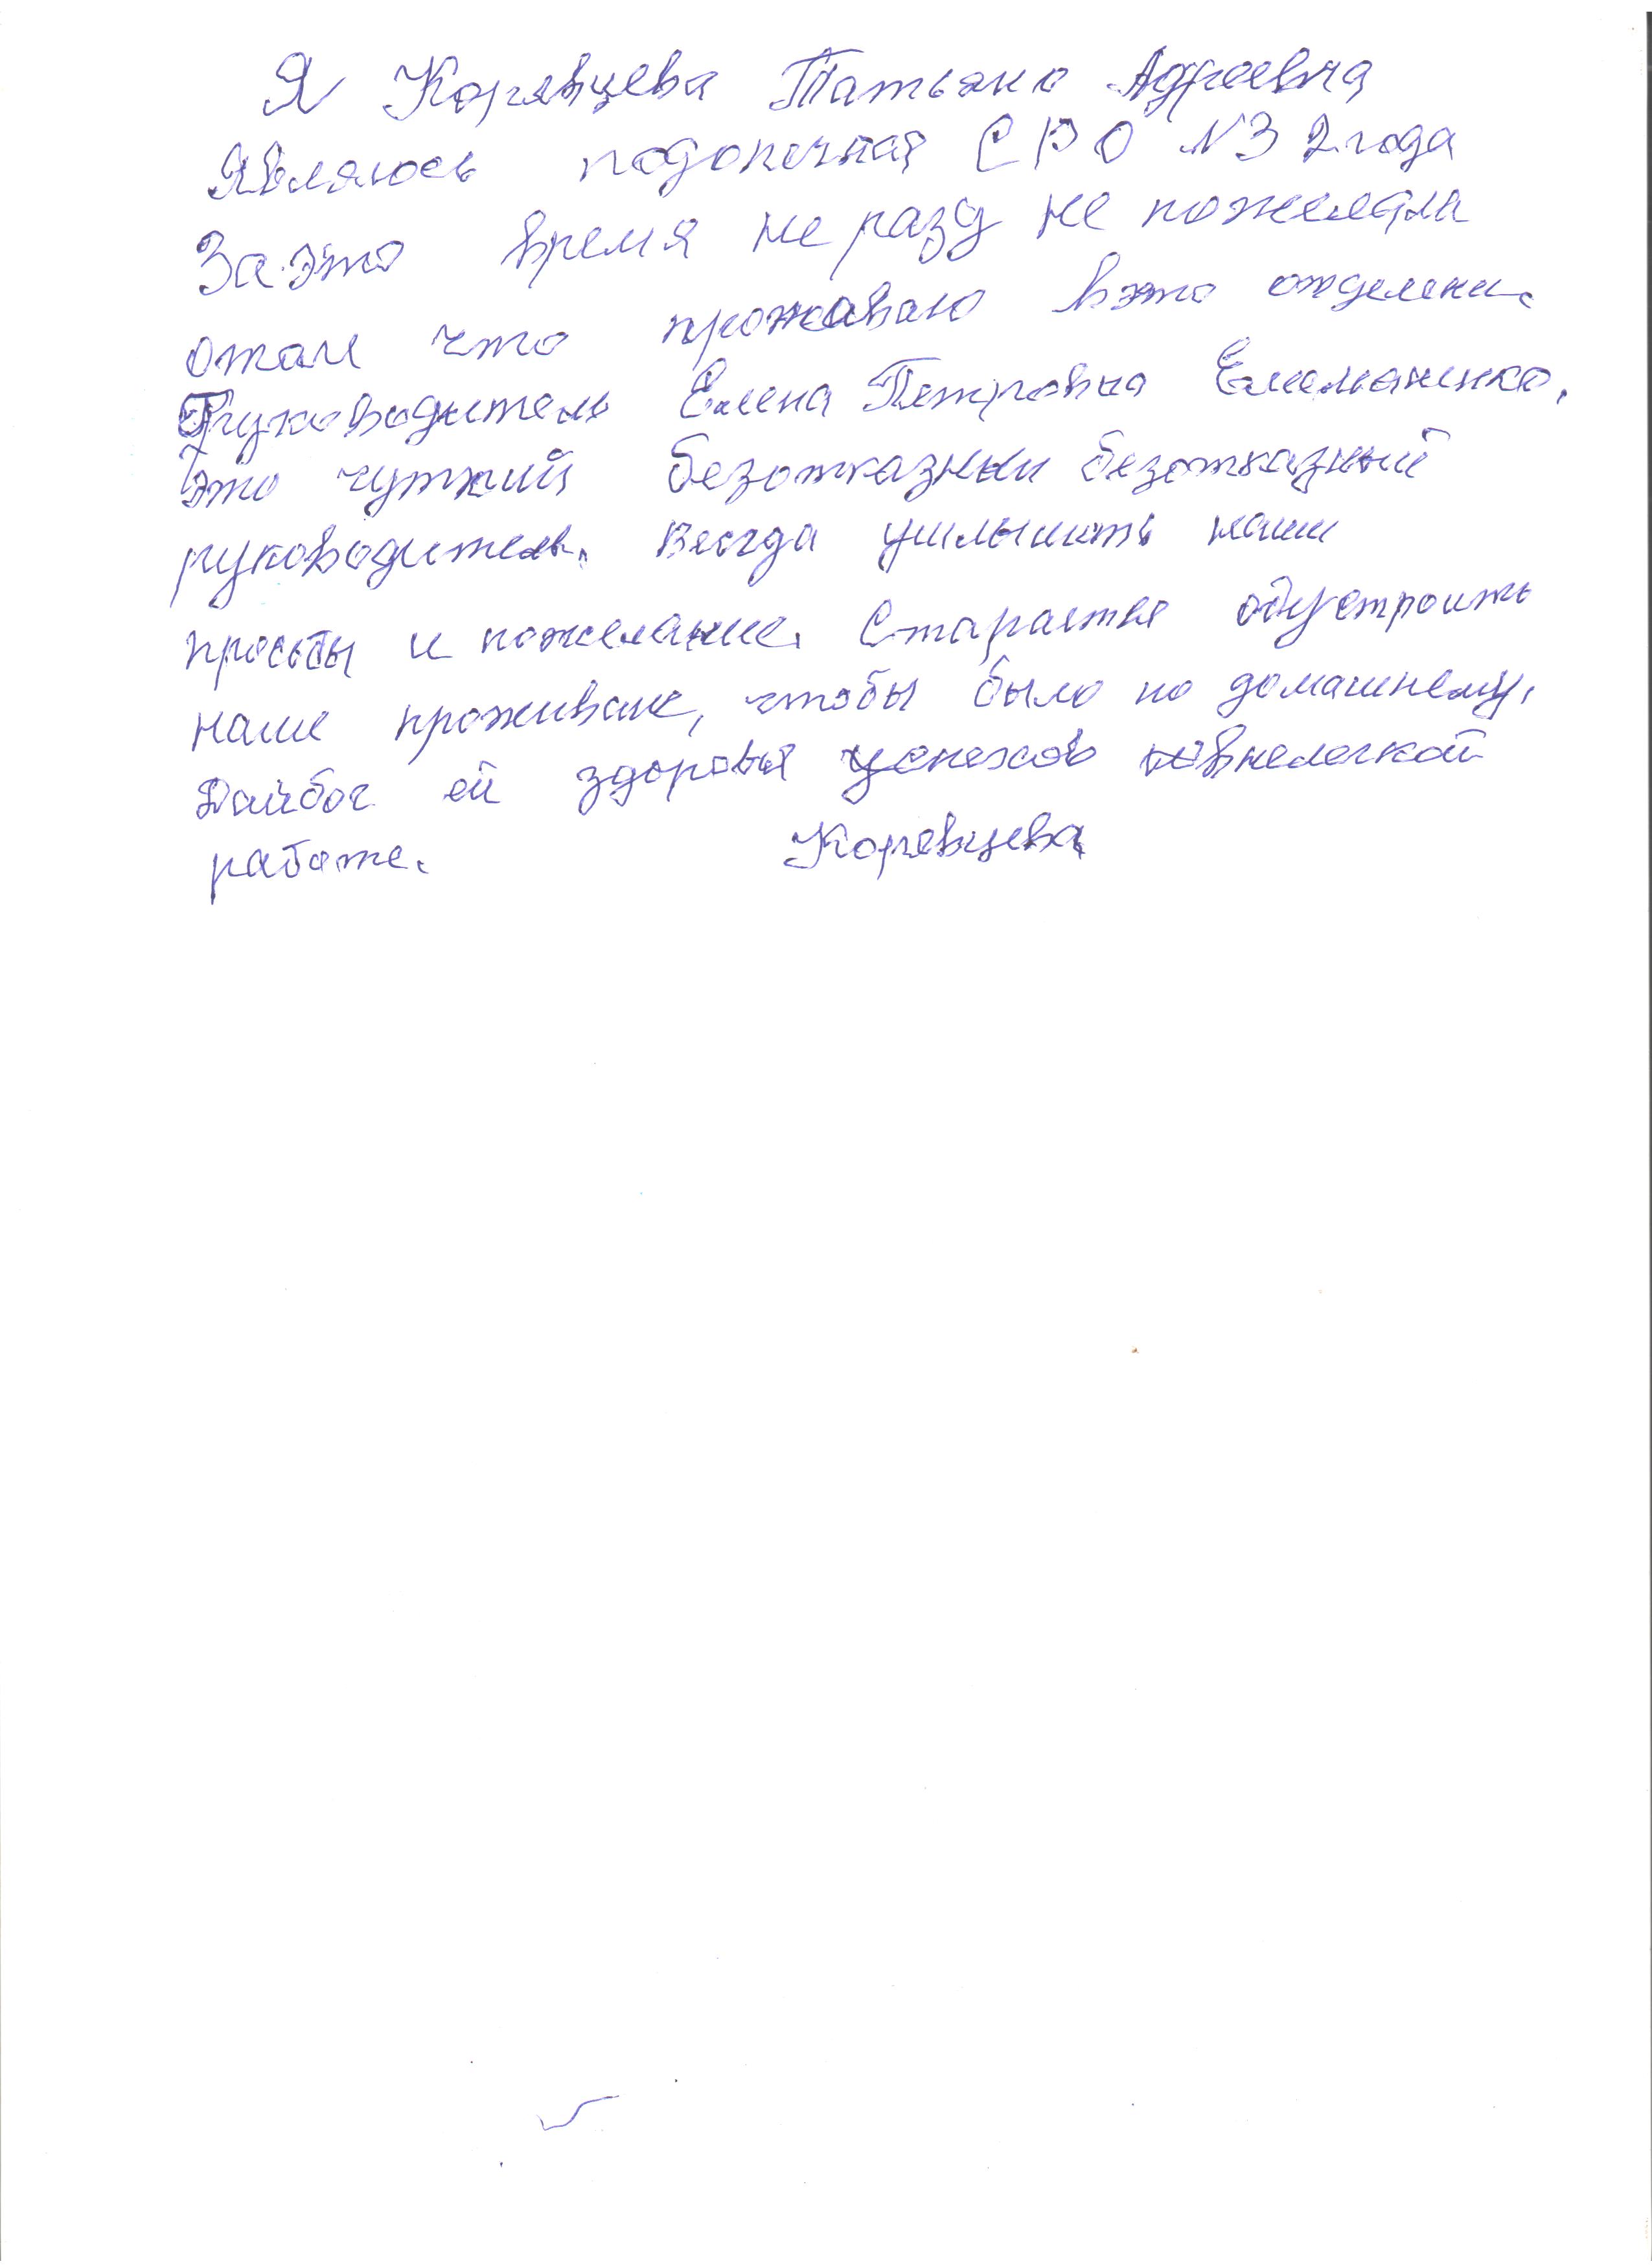 Я Корявцева Татьяна Адреевна
Являюсь подопечная СРО N3 2 года
За это время не разу не пожелала
отом что проживаю вэто отделени.
Руководитель Елена Петровна Емельяненко.
это чуткий безотказны безотказный
руководитель. Всегда умлышить наши
просьбы и пожелание. Старается обустроить
наше проживане, чтобы было по домашнему.
Дайбог ей здоровья успехов внелегкой
работе. Корявцева